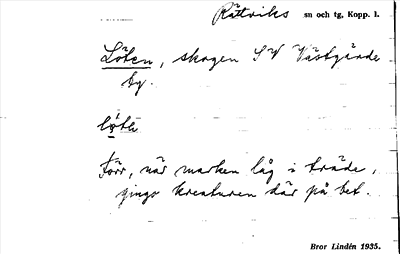 Rättviks sn och tg, Kopp. l.
Löten, skogen SV Västgärde
by.
löth
Förr, när marken låg i träde,
gingo kreaturen där på bet.
Bror Lindén 1935.